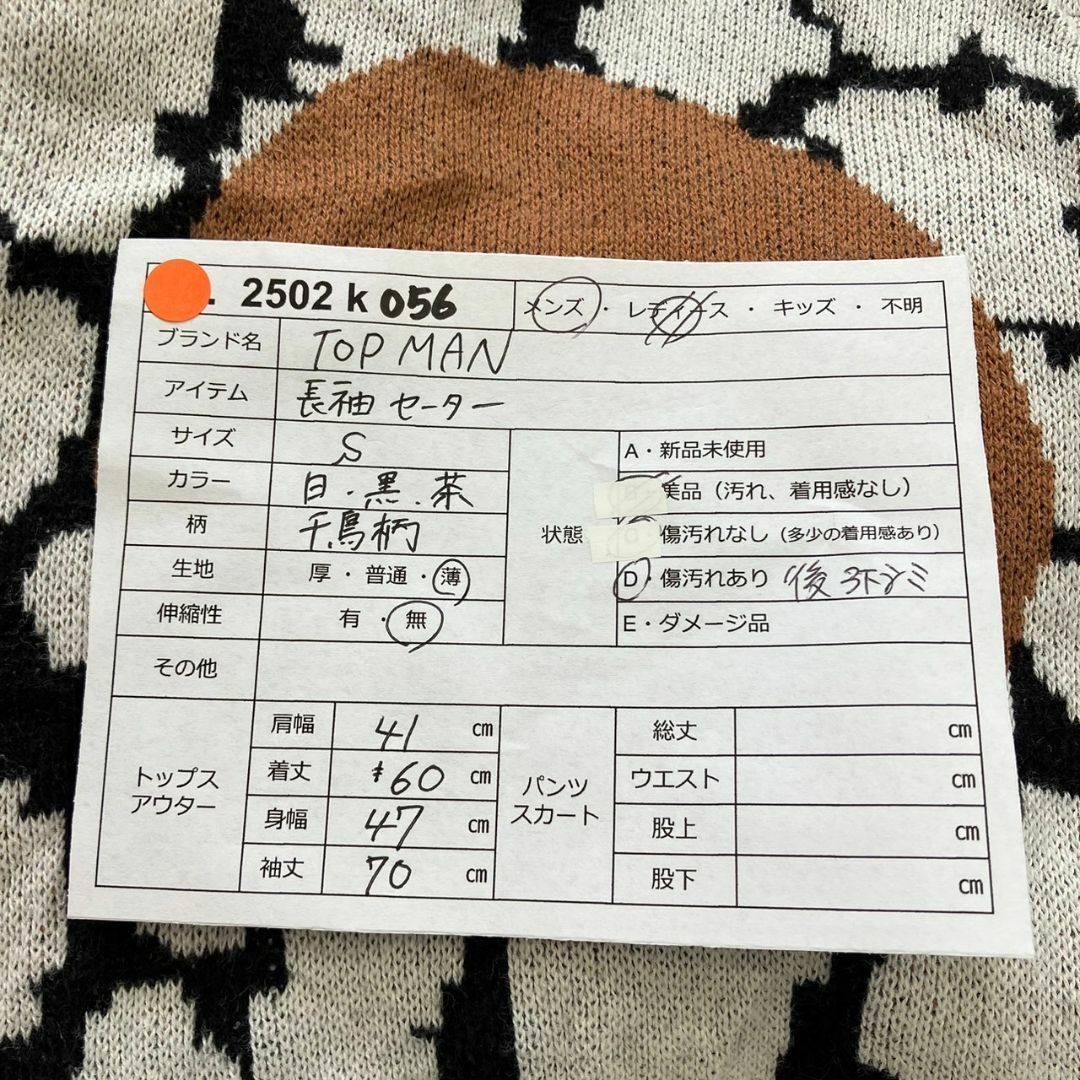 . 2502 k 056
メンズ ・ レディース ・ キッズ ・ 不明
ブランド名 TOP MAN
アイテム 長袖 セーター
サイズ S
カラー 白・黒・茶
柄 千鳥柄
生地 厚・普通・薄
伸縮性 有・無
状態
A・新品未使用
美品（汚れ、着用感なし）
傷汚れなし（多少の着用感あり）
D・傷汚れあり 後
E・ダメージ品
その他
トップス
アウター
肩幅 41 ㎝
着丈 60 ㎝
身幅 47 ㎝
袖丈 70 ㎝
パンツ
スカート
総丈 ㎝
ウエスト ㎝
股上 ㎝
股下 ㎝